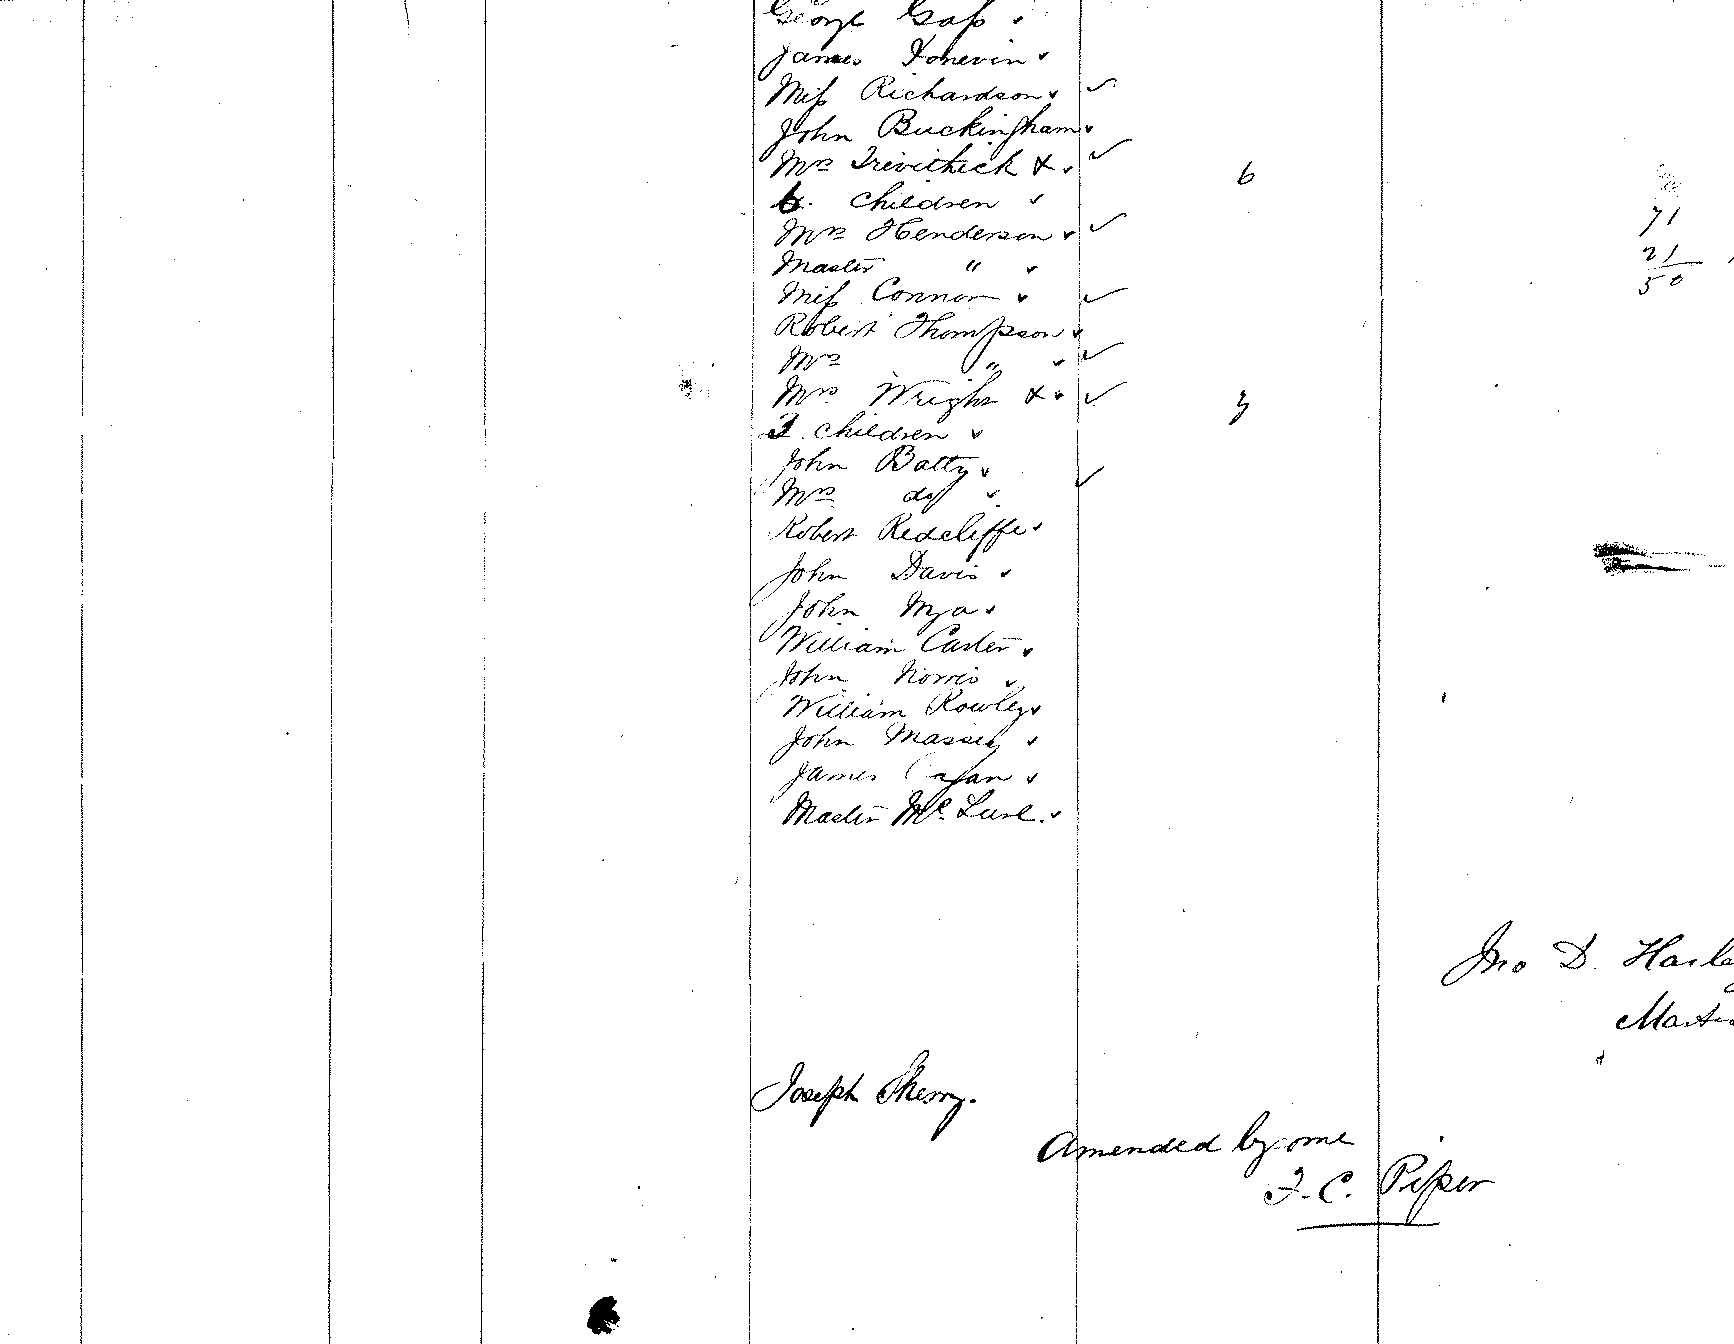 George Gass
James Konevin
Miss Richardson ✓
John Buckingham
Mrs Trevithick & ✓
6. children 6
Mrs Henderson ✓
Master "
Miss Connor ✓
Robert Thompson
Mrs " ✓
Mrs Wright & ✓
3 children 3
John Batty
Mrs do ✓
Robert Redcliffe
John Davis
John
William Carter
John Norris
William Rowley
John Massey
James
Master Mc Lure.
71
21
50
Jno D.
Joseph Sherry.
Amended by me
F. C. Piper